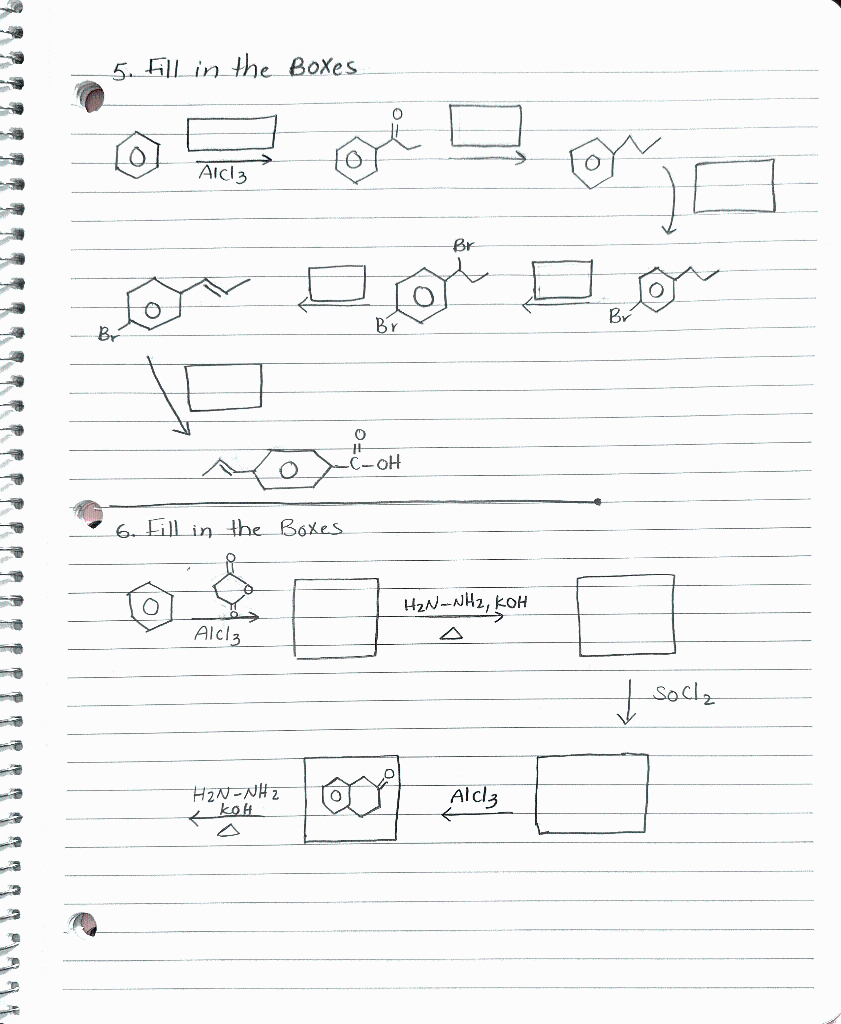 5. Fill in the Boxes
O
AlCl3
Br
Br
Br
Br
O
C-OH
6. Fill in the Boxes
O
O
O
AlCl3
H2N-NH2, KOH
△
SOCl2
H2N-NH2
KOH
△
O
AlCl3